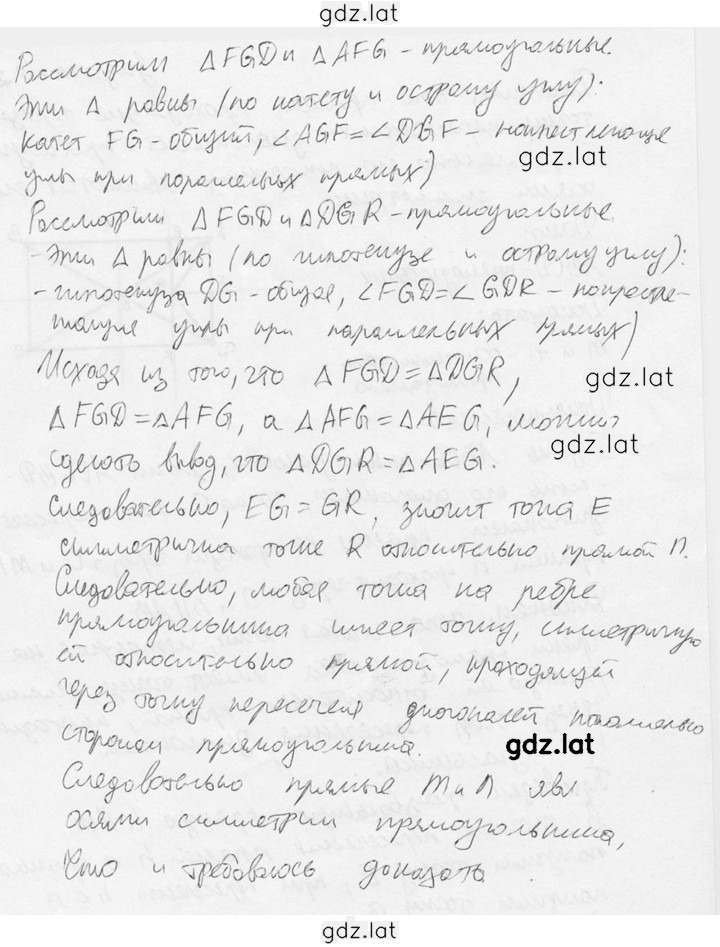 gdz.lat
Рассмотрим △FGD и △AFG - прямоугольные.
Эти △ равны (по катету и острому углу):
Катет FG - общий, ∠AGF=∠DGF - накрест лежащие
gdz.lat
углы при параллельных прямых)
Рассмотрим △FGD и △DGR - прямоугольные.
- Эти △ равны (по гипотенузе и острому углу):
- гипотенуза DG - общая, ∠FGD=∠GDR - накрест ле-
жащие углы при параллельных прямых)
Исходя из того, что △FGD=△DGR,
gdz.lat
△FGD=△AFG, а △AFG=△AEG, можно
gdz.lat
сделать вывод, что △DGR=△AEG.
Следовательно, EG=GR, значит точка E
симметрична точке R относительно прямой n.
Следовательно, любая точка на ребре
прямоугольника имеет точку, симметричную
ей относительно прямой, проходящей
через точку пересечения диагоналей параллельно
сторонам прямоугольника.
gdz.lat
Следовательно прямые m и n явл
осями симметрии прямоугольника,
Что и требовалось доказать.
gdz.lat